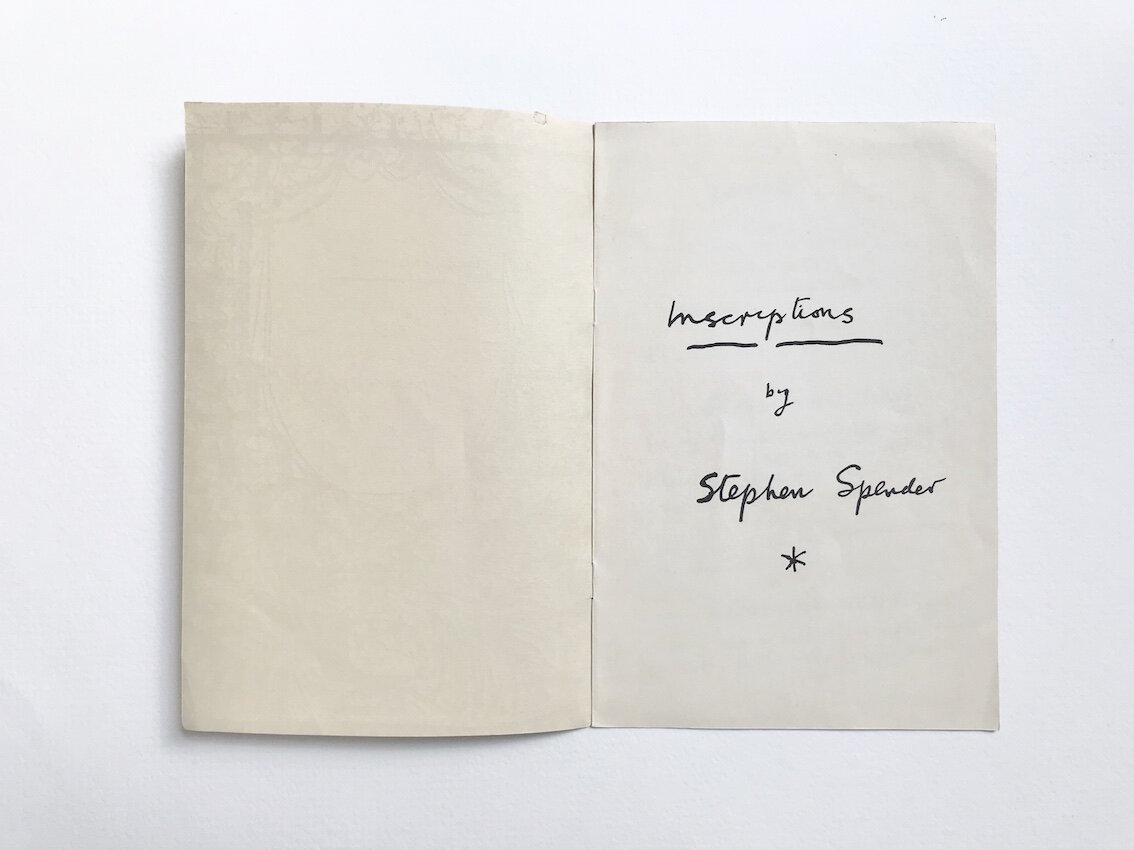 Inscriptions
by
Stephen Spender
*